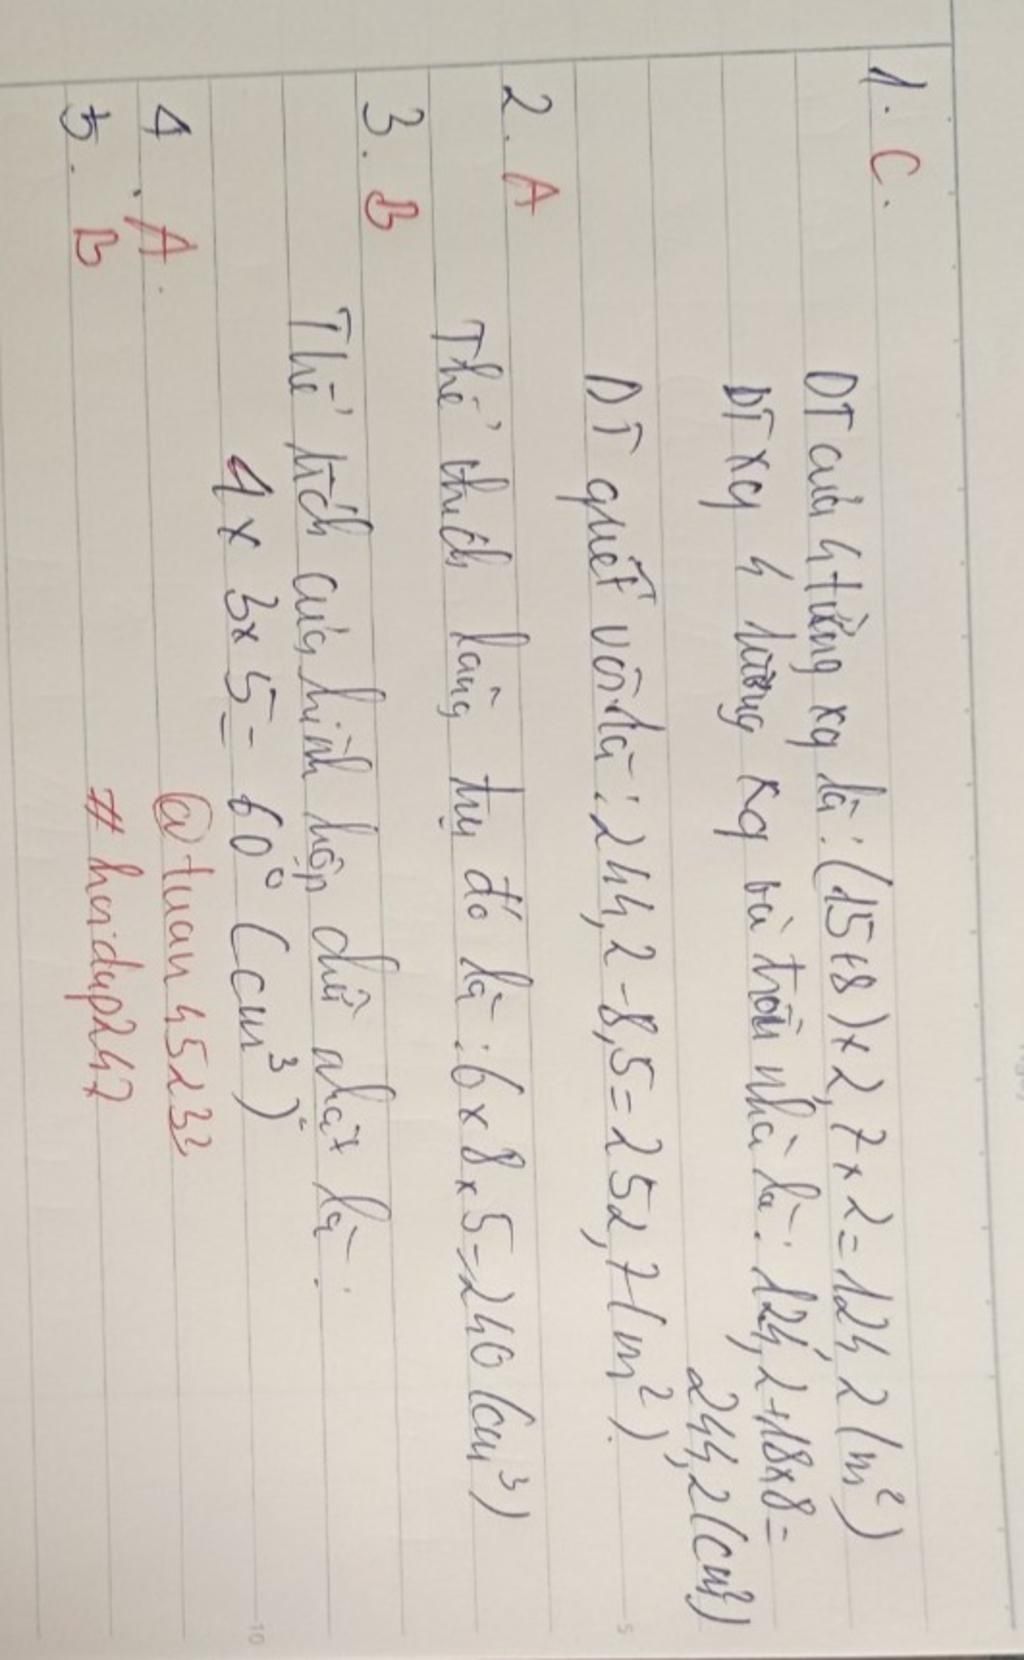 1. C.
DT của 4 tường xq là: (15+8)×2,7×2=124,2(m²)
DT xq 4 tường xq và trần nhà là: 124,2+18×8=
244,2(cm²)
DT quét vôi là: 244,2-8,5=252,7(m²).
2. A
Thể thích lăng trụ đó là: 6×8×5=240(cm³)
3. B
Thể tích của hình hộp chữ nhật là:
4×3×5=60(cm³)
4. A.
5. B
@tuan4523
#hoidap247